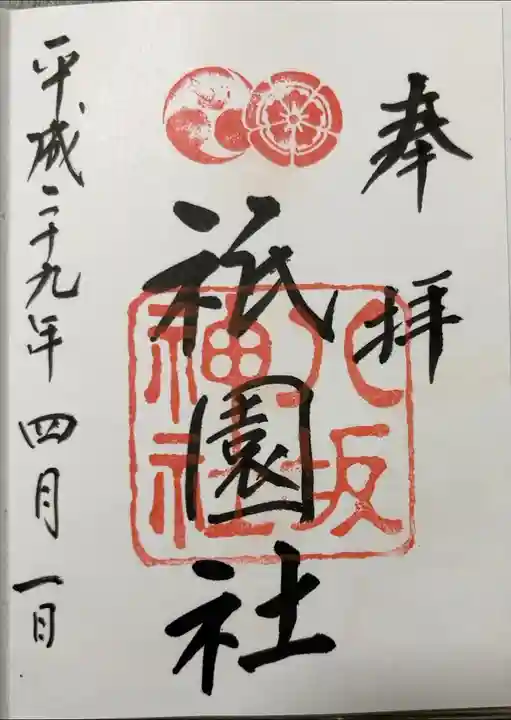 奉拝
祇園社
八坂
神社
平成二十九年四月一日